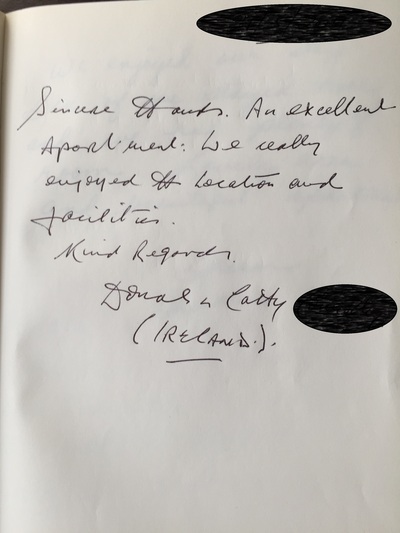 Sincere Thanks. An excellent
Apartment: We really
enjoyed the Location and
facilities.
Kind Regards.
Donal & Cathy
(IRELAND.).